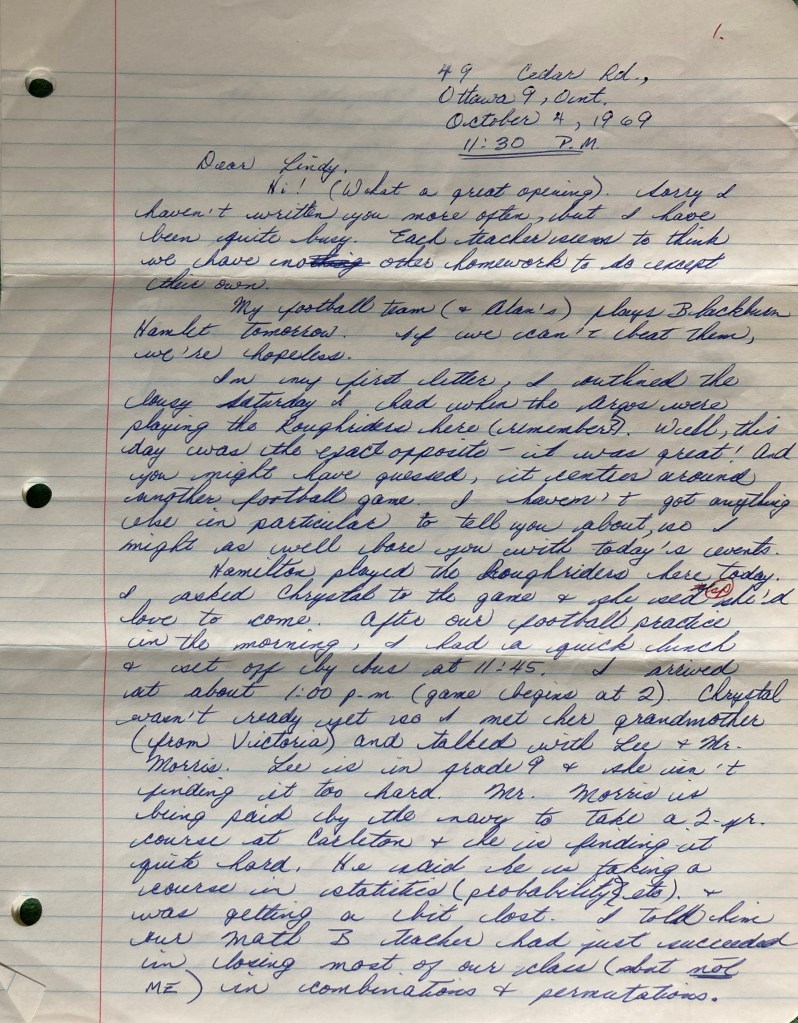 1.
49 Cedar Rd.,
Ottawa 9, Ont.
October 4, 1969
11:30 P.M.
Dear Lindy,
Hi! (What a great opening). Sorry I
haven't written you more often, but I have
been quite busy. Each teacher seems to think
we have no other homework to do except
their own.
My football team (& Alan's) plays Blackburn
Hamlet tomorrow. If we can't beat them,
we're hopeless.
In my first letter, I outlined the
lousy Saturday I had when the Argos were
playing the Roughriders here (remember?). Well, this
day was the exact opposite - it was great! And
you might have guessed, it centers around
another football game. I haven't got anything
else in particular to tell you about, so I
might as well bore you with today's events.
Hamilton played the Roughriders here today.
I asked Chrystal to the game & she sed sp she'd
love to come. After our football practice
in the morning, I had a quick lunch
& set off by bus at 11:45. I arrived
at about 1:00 p.m. (game begins at 2). Chrystal
wasn't ready yet so I met her grandmother
(from Victoria) and talked with Lee & Mr.
Morris. Lee is in grade 9 & she isn't
finding it too hard. Mr. Morris is
being paid by the navy to take a 2-yr.
course at Carleton & he is finding it
quite hard. He said he is taking a
course in statistics (probability, etc). &
was getting a bit lost. I told him
our Math B teacher had just succeeded
in losing most of our class (but not
ME) in combinations & permutations.